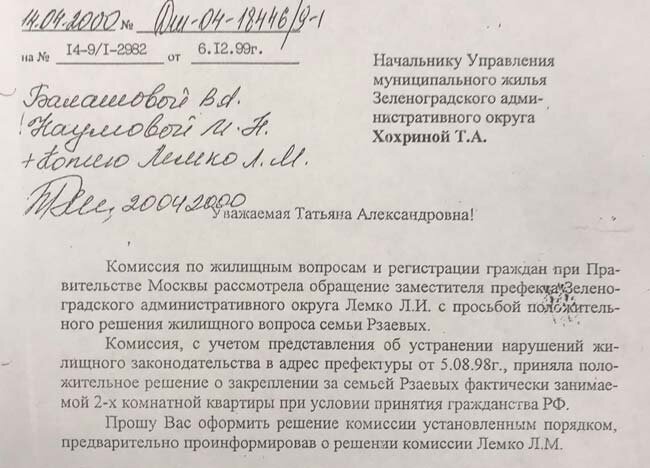 14.04.2000 № Дм-04-18446/9-1
на № I4-9/I-2982 от 6.I2.99г.
Балашовой В.А.
! Наумовой И.Н.
+ Копию Лемко Л.М.
20042000
Начальнику Управления
муниципального жилья
Зеленоградского адми-
нистративного округа
Хохриной Т.А.
Уважаемая Татьяна Александровна!
Комиссия по жилищным вопросам и регистрации граждан при Пра-
вительстве Москвы рассмотрела обращение заместителя префекта Зелено-
градского административного округа Лемко Л.И. с просьбой положитель-
ного решения жилищного вопроса семьи Рзаевых.
Комиссия, с учетом представления об устранении нарушений жи-
лищного законодательства в адрес префектуры от 5.08.98г., приняла поло-
жительное решение о закреплении за семьей Рзаевых фактически занимае-
мой 2-х комнатной квартиры при условии принятия гражданства РФ.
Прошу Вас оформить решение комиссии установленным порядком,
предварительно проинформировав о решении комиссии Лемко Л.М.